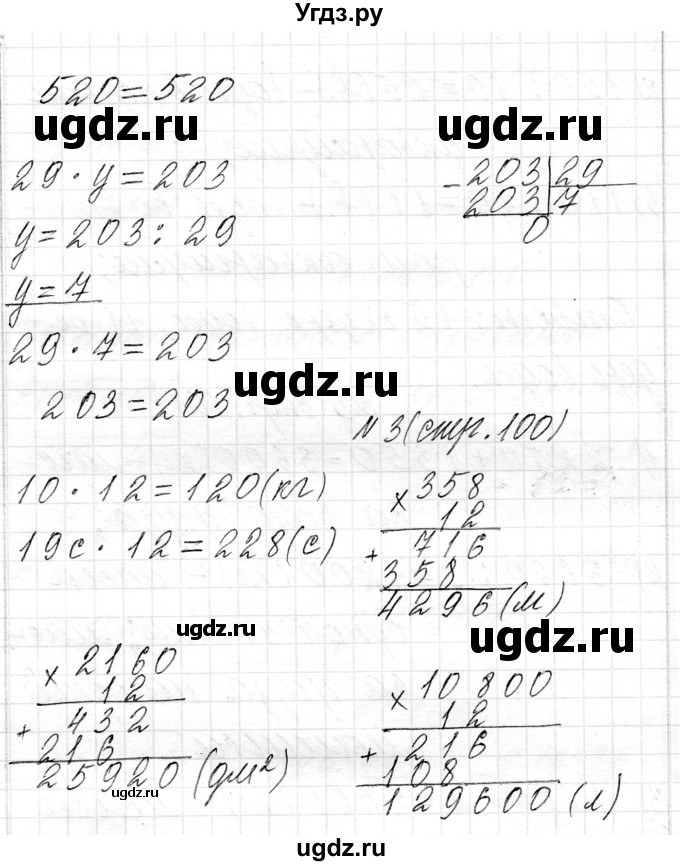 Угдз.ру
520=520
ugdz.ru
ugdz.ru
29·y=203
y=203:29
y=7
-203|29
203|7
0
29·7=203
203=203
ugdz.ru
N3(стр.100)
10·12=120(кг)
19с·12=228(с)
×358
12
+ 716
358
4296(м)
ugdz.ru
ugdz.ru
×2160
12
+ 432
216
25920(дм²)
ugdz.ru
×10800
12
+ 216
108
129600(л)
ugdz.ru